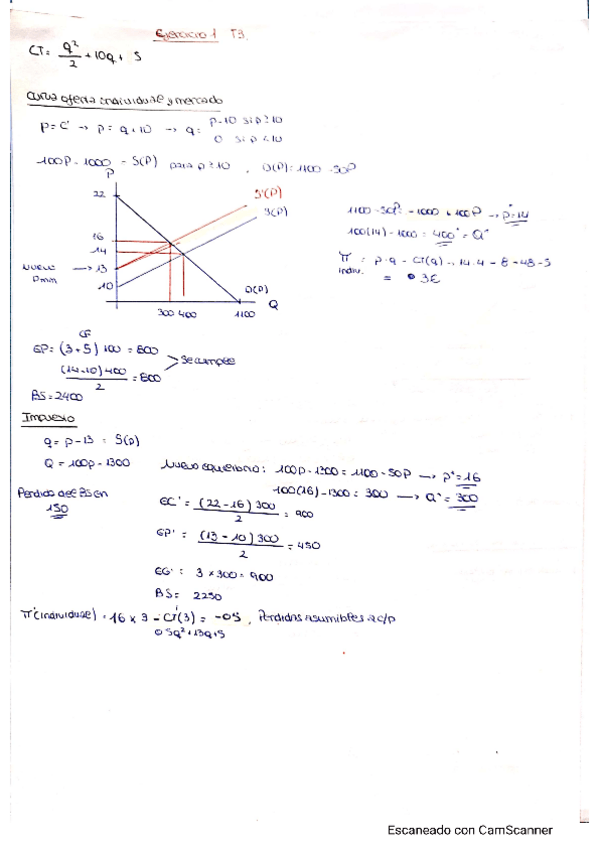 Ejercicio 1 T3.
CT = q²/2 + 10q + 5
Curva oferta individual y mercado
p = C' → p = q + 10 → q = p-10 si p ≥ 10
0 si p < 10
100P - 1000 = S(P) para p ≥ 10, D(P) = 1100 - 50P
P
22
16
14
Nuevo Pmin → 13
10
S'(P)
S(P)
D(P)
Q
300 400 1100
1100 - 50P = -1000 + 100P → p* = 14
100(14) - 1000 = 400 = Q*
π indiv. = p·q - CT(q) = 14·4 - 8 - 40 - 5
= 3€
CF
EP = (3+5) 100 = 800
(14-10)400 / 2 = 800
Se cumple
BS = 2400
Impuesto
q = p - 13 = S(p)
Q = 100p - 1300
Nuevo equilibrio: 100p - 1300 = 1100 - 50P → p* = 16
100(16) - 1300 = 300 → Q* = 300
Perdida del BS en
150
EC' = (22-16) 300 / 2 = 900
EP' = (13-10) 300 / 2 = 450
EG' = 3 × 300 = 900
BS = 2250
π'(individual) = 16 × 3 - CT'(3) = -0'5, Perdidas asumibles a c/p
0'5q² + 13q + 5
Escaneado con CamScanner